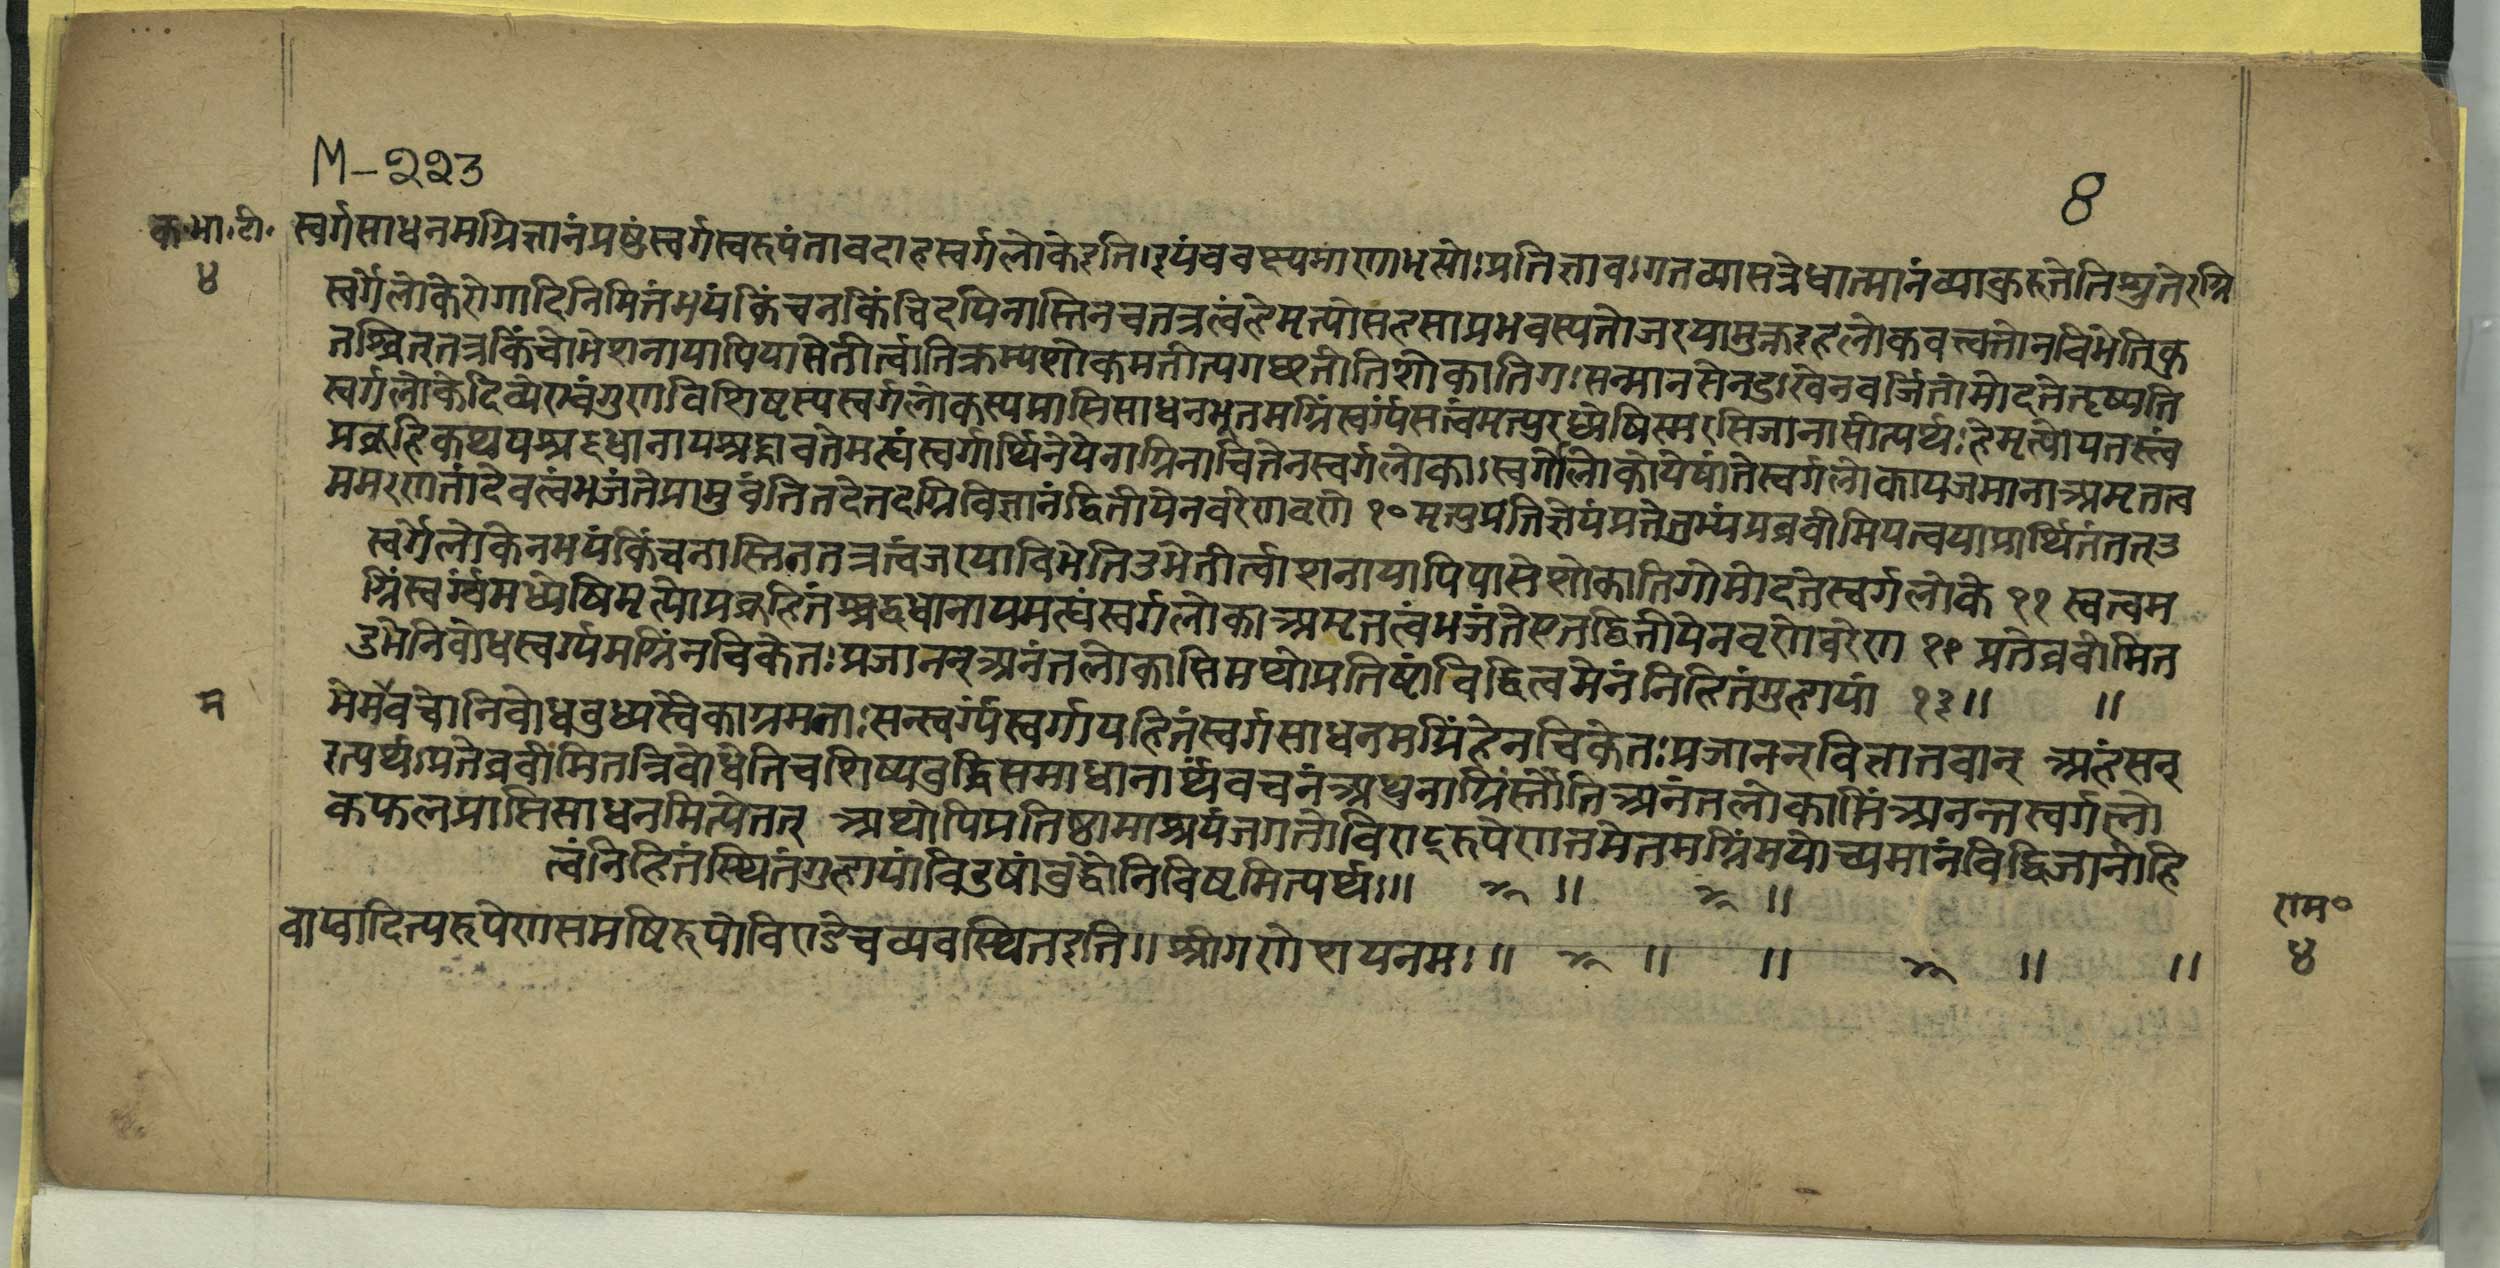 M-२२३
8
क.भा.टी. स्वर्गसाधनमग्निज्ञानंप्रष्टुंस्वर्गस्वरूपंतावदाहस्वर्गलोकेइति।इयंचवक्ष्यमाणामृत्योःप्रतिज्ञाव।गतव्यासत्रेधात्मानंव्याकुरुतेतिश्रुतेरग्नि
४ स्वर्गेलोकेरोगादिनिमित्तंभयंकिंचनकिंचिदपिनास्तिनचतत्रत्वंहेमृत्योसहसाप्रभवस्यतोजरयामुक्तइहलोकवत्त्वत्तोनबिभेतिकु
तश्चित्तत्रकिंचोभेशनायापिपासेतीर्त्वातिक्रम्यशोकमतीत्यगछतीतिशोकातिगःसन्मानसेनदुःखेनवर्जितोमोदतेहृष्यति
स्वर्गलोकेदिव्येएवंगुणविशिष्टस्यस्वर्गलोकस्यप्राप्तिसाधनभूतमग्निंस्वर्ग्यंसत्वंमत्युरध्येषिस्मरसिजानासीत्यर्थःहेमृत्योयतस्त्वं
प्रब्रूहिकथयश्रद्दधानायश्रद्धावतेमह्यंस्वर्गार्थिनेयेनाग्निनाचितेनस्वर्गलोकाःस्वर्गोलोकोयेषांतेस्वर्गलोकायजमानाअमृतत्व
ममरणतांदेवत्वंभजंतेप्राप्नुवंतितदेतदग्निविज्ञानंद्वितीयेनवरेणवृणे १० मृत्युप्रतिज्ञेयंप्रतेतुभ्यंप्रब्रवीमियत्त्वयाप्रार्थितंतत्उ
स्वर्गेलोकेनभयंकिंचनास्तिनतत्रत्वंजरयाबिभेतिउभेतीर्त्वाशनायापिपासेशोकातिगोमोदतेस्वर्गलोके ११ स्वत्वम
ग्निंस्वर्ग्यमध्येषिमृत्योप्रब्रूहितंश्रद्दधानायमह्यंस्वर्गलोकाअमृतत्वंभजंतेएतद्द्वितीयेनवृणेवरेण १२ प्रतेब्रवीमित
उमेनिबोधस्वर्ग्यमग्निंनचिकेतःप्रजानन्अनंतलोकाप्तिमथोप्रतिष्टांविद्धित्वमेनंनिहितंगुहायां १३॥ ॥
म मेममैवचोनिबोधबुध्यस्वैकाग्रमनाःसन्स्वर्ग्यंस्वर्गायहितंस्वर्गसाधनमग्निंहेनचिकेतःप्रजानन्विज्ञातवान् अहंसन्
इत्यर्थःप्रतेब्रवीमितन्निबोधेतिचशिष्यबुद्धिसमाधानार्थंवचनंअधुनाग्निंस्तौतिअनंतलोकाप्तिंअनन्तस्वर्गलो
कफलप्राप्तिसाधनमित्येतत् अथोपिप्रतिष्ठामाश्रयंजगतोविराट्रूपेणतमेतमग्निंमयोच्यमानंविद्धिजानीहि
त्वंनिहितंस्थितंगुहायांविदुषांबुद्धौनिविष्टमित्यर्थः॥ ॥ ॥
वाय्वादित्यरूपेणसमष्टिरूपोविराडेवव्यवस्थितइति॥ श्रीगणेशायनमः॥ ॥ ॥ ॥ ॥
राम०
४